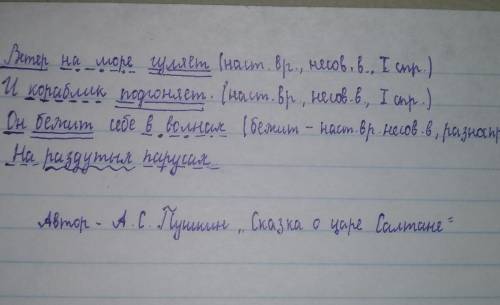 Ветер на море гуляет (наст. вр., несов. в., I спр.)
И кораблик подгоняет. (наст. вр, несов.в., I спр.)
Он бежит себе в волнах (бежит - наст.вр. несов. в, разноспр
На раздутых парусах
Автор - А. С. Пушкин „Сказка о царе Салтане"